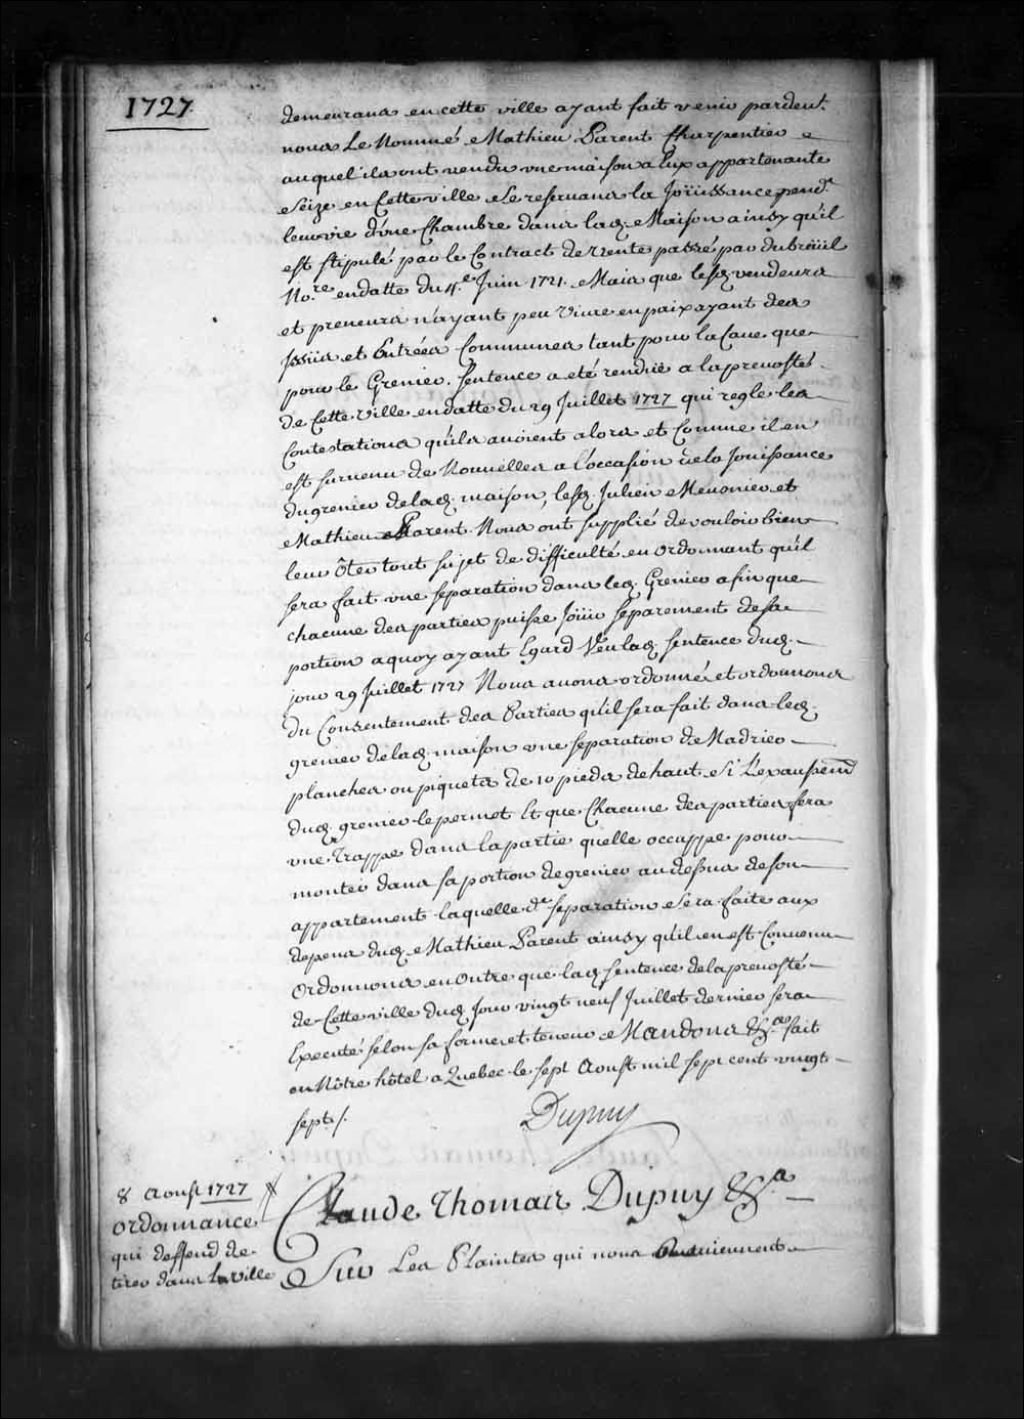 1727
demeurans en cette ville ayant fait venir pardevt.
nous Le Nommé Mathieu Parent Charpentier
auquel ils ont vendu une maison a Eux appartenante
Seize en Cette ville Se reservans la Joüissance pendt.
leur vie d'une Chambre dans lad. Maison ainsy qu'il
est stipulé par le Contract de vente passé par dubreüil
No.re en datte du 11.e Juin 1721. Mais que lesd. vendeurs
et preneurs n'ayant peu Vivre en paix ayant des
Issües et Entrées Communes tant pour la Cave que
pour le Grenier. Sentence a eté rendüe a la prevosté
de Cette Ville en datte du 29 Juillet 1727 qui regle les
Contestations qu'ils avoient alors et Comme il en
est survenu de Nouvelles a l'occasion de la Jouissance
du grenier de lad. maison, lesd. Julien Meunier et
Mathieu Parent Nous ont supplié de vouloir bien
leur Ôter tout sujet de difficulté en ordonnant qu'il
sera fait une separation dans led. Grenier afin que
chacune des parties puisse Joüir separement de sa
portion a quoy ayant Egard Veu lad. sentence dud.
jour 29 Juillet 1727 Nous avons ordonné et ordonnons
du Consentement des Parties qu'il sera fait dans led.
grenier de lad. maison une separation de Madrier
planches ou piquets de 10 pieds de haut Si L'exaussemt
dud. grenier le permet Et que Chacune des parties fera
une Trappe dans la partie quelle occuppe pour
monter dans sa portion de grenier au dessus de son
appartement laquelle de. separation Sera faite aux
depens dud. Mathieu Parent ainsy qu'il en est Convenu
Ordonnons en Outre que lad. sentence de la prevosté
de Cette ville dud. Jour vingt neuf Juillet dernier sera
Executé selon sa forme et teneur Mandons &.a fait
en Nôtre hôtel a Quebec le sept Aoust mil sept cent vingt
sept /.
Dupuy
8 Aoust 1727
ordonnance
qui deffend de
tirer dans la ville
Claude Thomas Dupuy &.a
Sur Les Plaintes qui nous